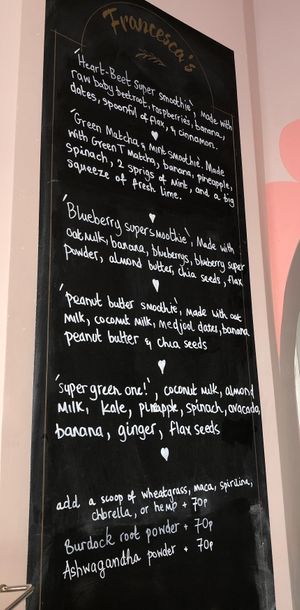 Francesca's
'Heart-Beet Super smoothie', made with
raw baby beetroot, raspberries, banana,
dates, spoonful of flax, & cinnamon.
'Green Matcha & Mint smoothie. Made
with Green T Matcha, banana, pineapple,
spinach, 2 sprigs of mint, and a big
squeeze of fresh lime.
'Blueberry super smoothie', Made with
oat milk, banana, bluebergs, blueberry super
Powder, almond butter, chia seeds, flax
'peanut butter smoothie', made with oat
milk, coconut milk, medjool dates, banana
peanut butter & chia seeds
'super green one!', coconut milk, almond
milk, kale, pineapple, spinach, avacado,
banana, ginger, flax seeds
add a scoop of wheatgrass, maca, spirulina,
chlorella, or hemp + 70p
Burdock root powder + 70p
Ashwagandha powder + 70p